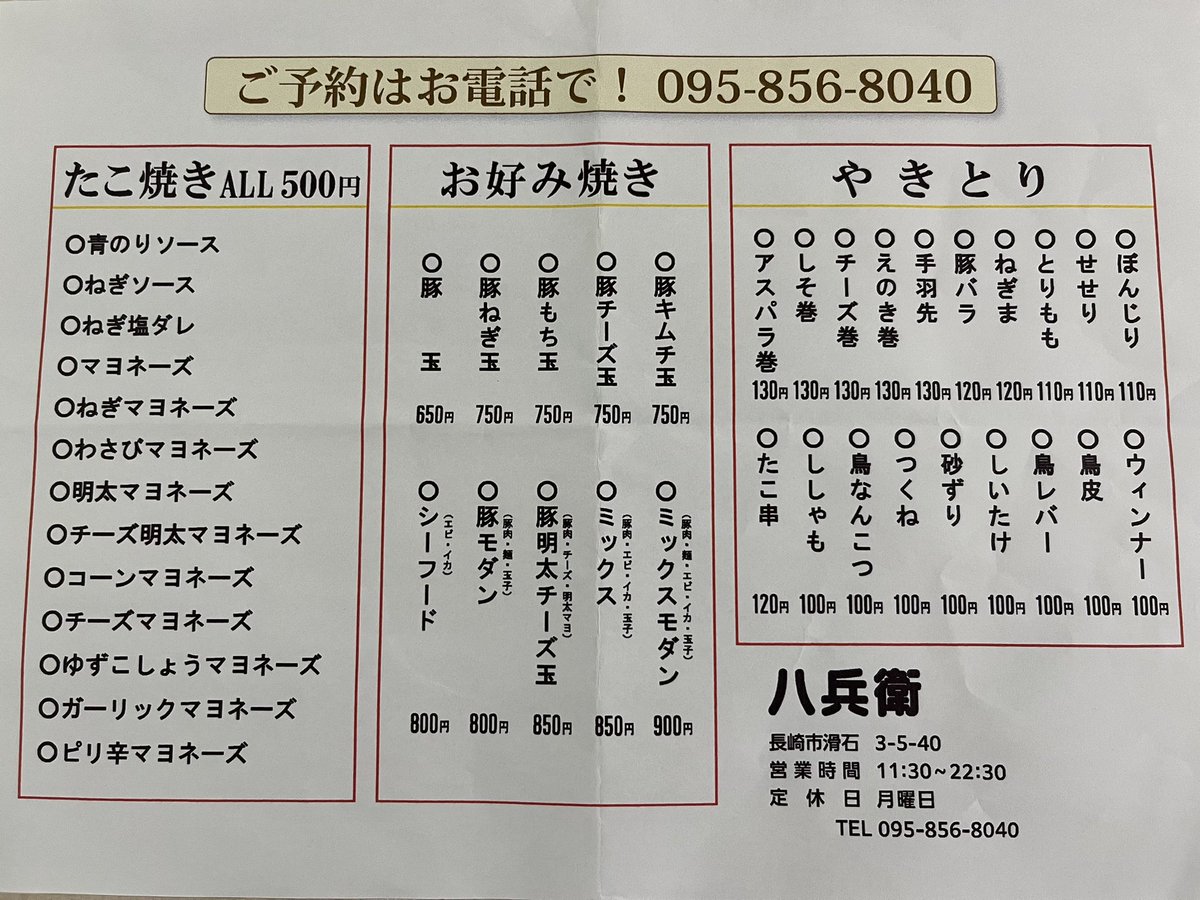 ご予約はお電話で！ 095-856-8040
たこ焼き ALL 500円
〇青のりソース
〇ねぎソース
〇ねぎ塩ダレ
〇マヨネーズ
〇ねぎマヨネーズ
〇わさびマヨネーズ
〇明太マヨネーズ
〇チーズ明太マヨネーズ
〇コーンマヨネーズ
〇チーズマヨネーズ
〇ゆずこしょうマヨネーズ
〇ガーリックマヨネーズ
〇ピリ辛マヨネーズ
お好み焼き
〇豚キムチ玉 750円
〇豚チーズ玉 750円
〇豚もち玉 750円
〇豚ねぎ玉 750円
〇豚玉 650円
〇ミックスモダン (豚肉・麺・エビ・イカ・玉子) 900円
〇ミックス (豚肉・エビ・イカ・玉子) 850円
〇豚明太チーズ玉 (豚肉・チーズ・明太マヨ) 850円
〇豚モダン (豚肉・麺・玉子) 800円
〇シーフード (エビ・イカ) 800円
やきとり
〇ぼんじり 110円
〇せせり 110円
〇とりもも 110円
〇ねぎま 120円
〇豚バラ 120円
〇手羽先 130円
〇えのき巻 130円
〇チーズ巻 130円
〇しそ巻 130円
〇アスパラ巻 130円
〇ウィンナー 100円
〇鳥皮 100円
〇鳥レバー 100円
〇しいたけ 100円
〇砂ずり 100円
〇つくね 100円
〇鳥なんこつ 100円
〇ししゃも 100円
〇たこ串 120円
八兵衛
長崎市滑石 3-5-40
営業時間 11:30~22:30
定休日 月曜日
TEL 095-856-8040